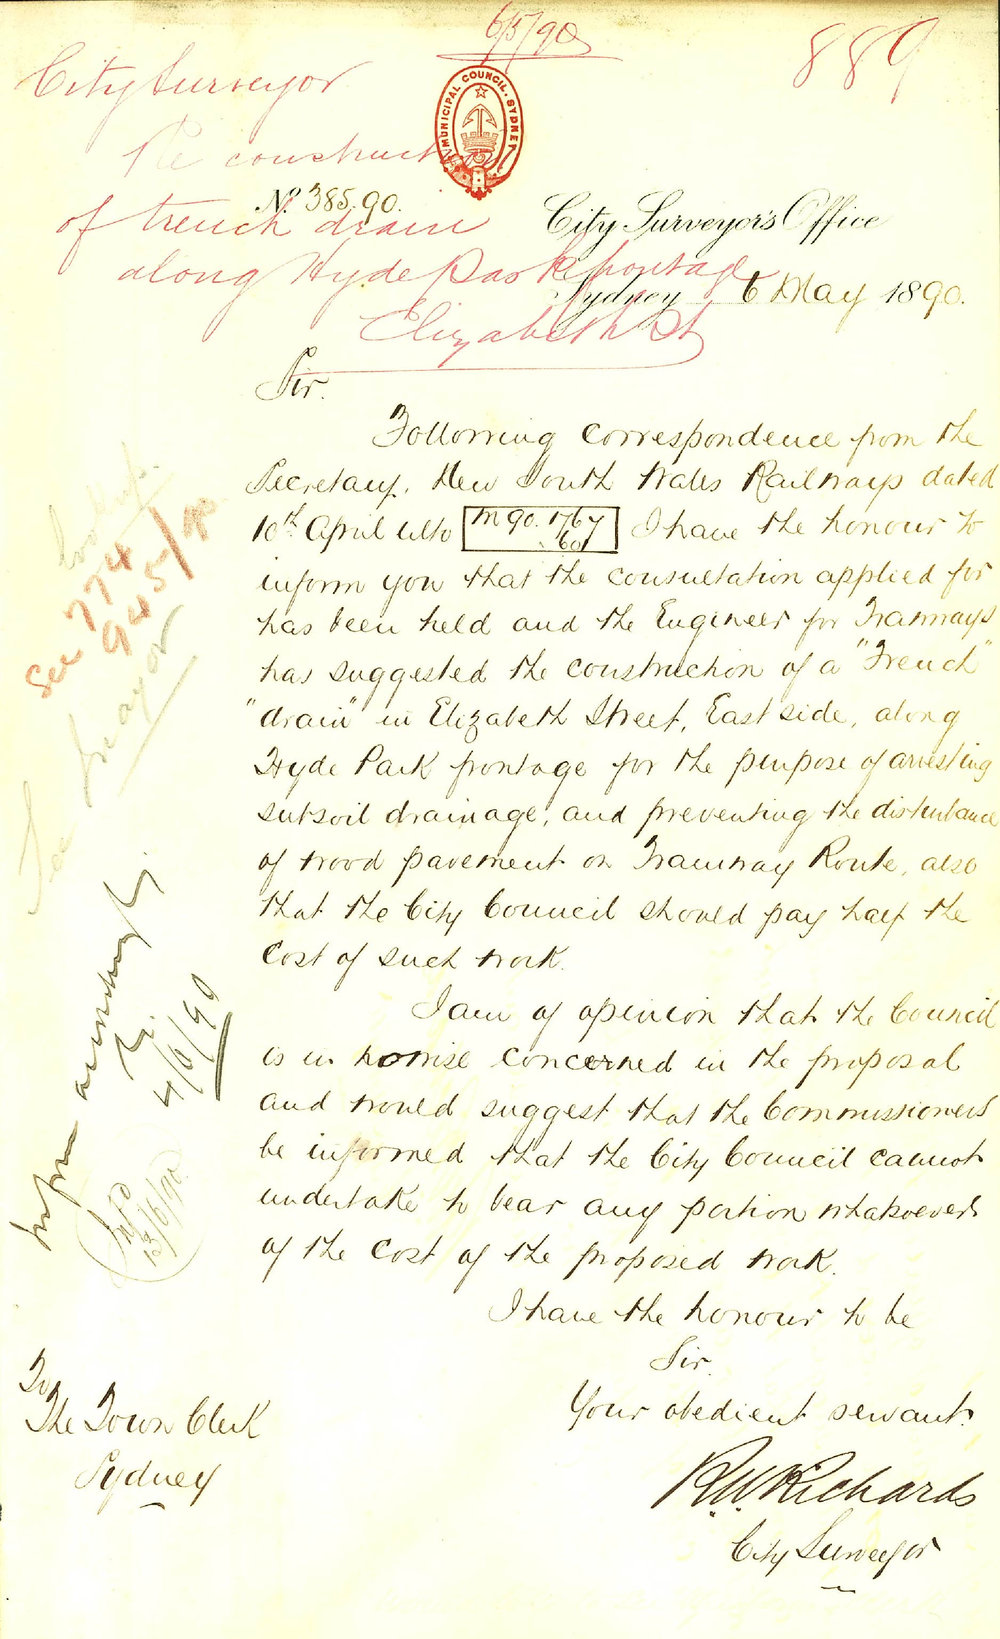 6/5/90
889
City Surveyor
Re construction
of trench drain
along Hyde Park frontage
Elizabeth St
MUNICIPAL COUNCIL. SYDNEY
No. 385.90.
City Surveyor's Office
Sydney 6 May 1890.
Sir.
Following correspondence from the
Secretary, New South Wales Railways dated
10th April ulto M 90. 1767
601 I have the honour to
inform you that the consultation applied for
has been held and the Engineer for Tramways
has suggested the construction of a "French"
"drain" in Elizabeth Street, East side, along
Hyde Park frontage for the purpose of arresting
subsoil drainage, and preventing the disturbance
of wood pavement on Tramway Route, also
that the City Council should pay half the
cost of such work.
I am of opinion that the Council
is in nowise concerned in the proposal
and would suggest that the Commissioners
be informed that the City Council cannot
undertake to bear any portion whatsoever
of the cost of the proposed work.
I have the honour to be
Sir.
Your obedient servant.
R.W. Richards
City Surveyor
To
The Town Clerk
Sydney
See 774
945/90
See Mayor
Inform accordingly
4/6/90
Infd
13/6/90